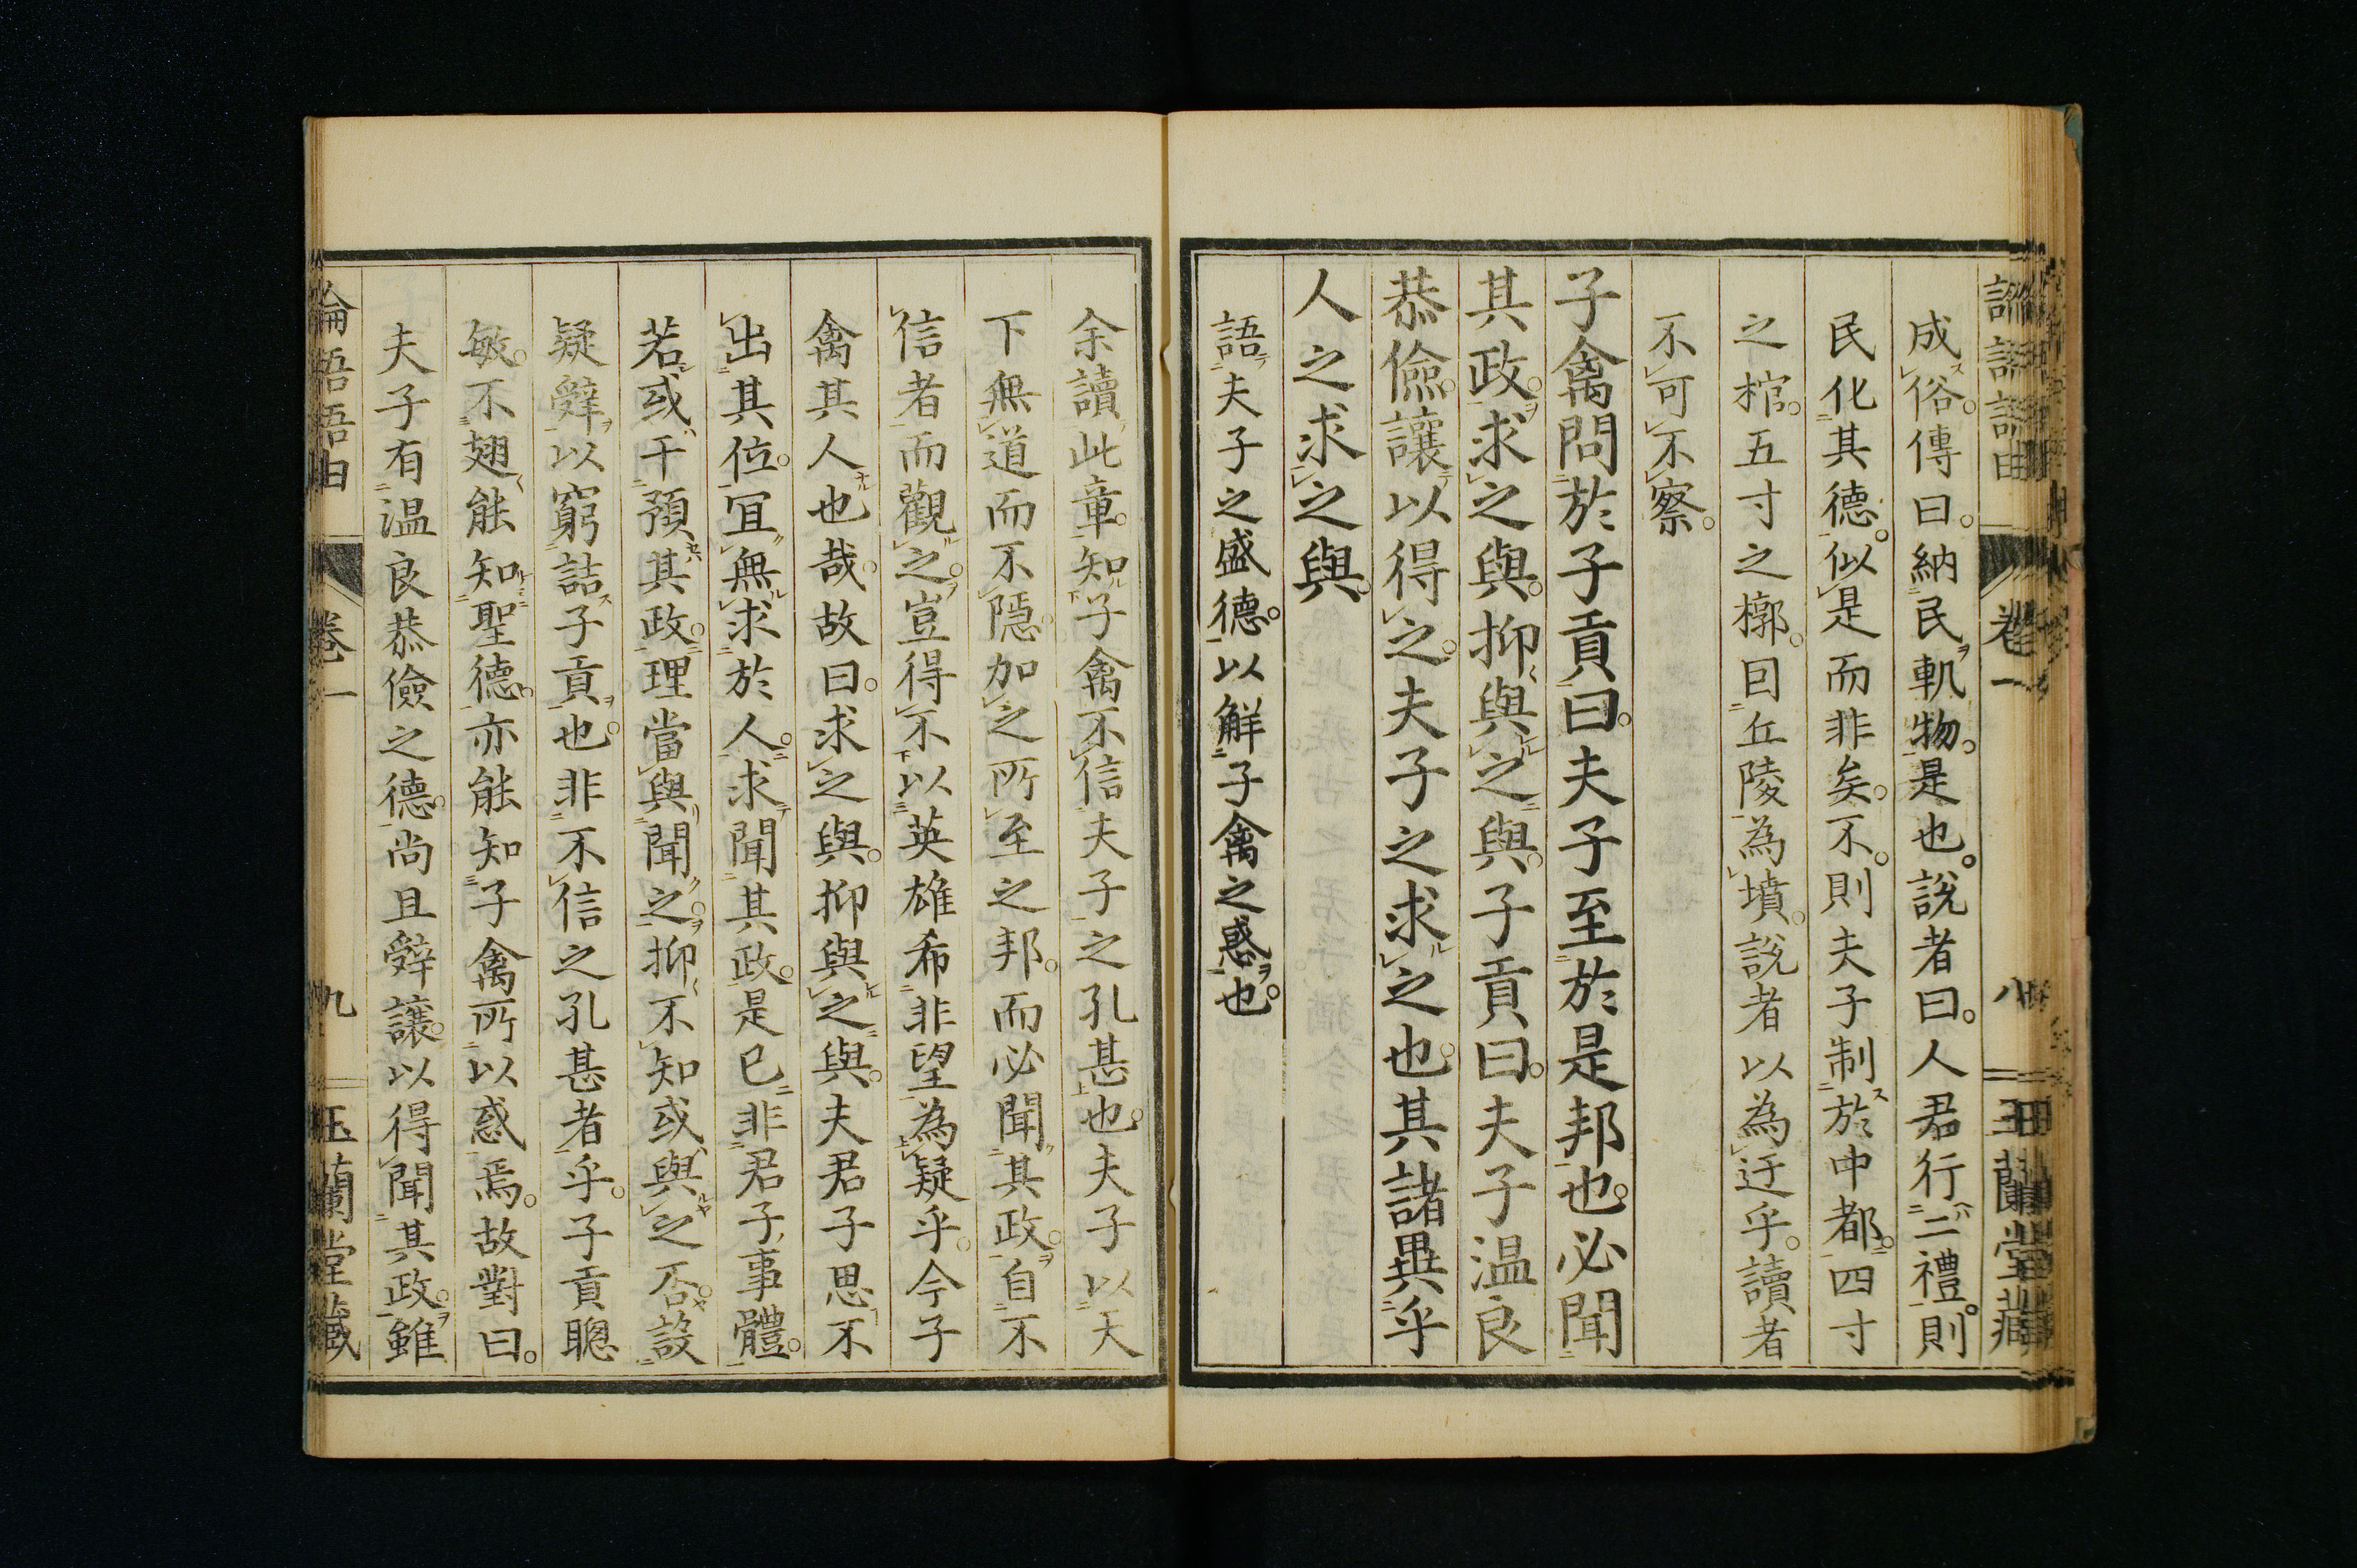 論語語由 卷一 八 玉蘭堂藏
成俗。傳曰。納民軌物。是也。說者曰。人君行二禮。則
民化其德。似是而非矣。不。則夫子制於中都。四寸
之棺。五寸之槨。因丘陵為墳。說者以為迂乎。讀者
不可不察。
子禽問於子貢曰。夫子至於是邦也。必聞
其政。求之與。抑與之與。子貢曰。夫子溫良
恭儉讓以得之。夫子之求之也。其諸異乎
人之求之與。
語夫子之盛德。以解子禽之惑也。
余讀此章。知子禽不信夫子之孔甚也。夫子以天
下無道而不隱。加之所至之邦。而必聞其政。自不
信者而觀之。豈得不以英雄希非望為疑乎。今子
禽其人也哉。故曰。求之與。抑與之與。夫君子思不
出其位。宜無求於人。求聞其政。是已非君子事體。
若或干預其政。理當與聞之。抑不知或與之否。設
疑辭以窮詰子貢也。非不信之孔甚者乎。子貢聰
敏。不翅能知聖德。亦能知子禽所以惑焉。故對曰。
夫子有溫良恭儉之德。尚且辭讓。以得聞其政。雖
論語語由 卷一 九 玉蘭堂藏